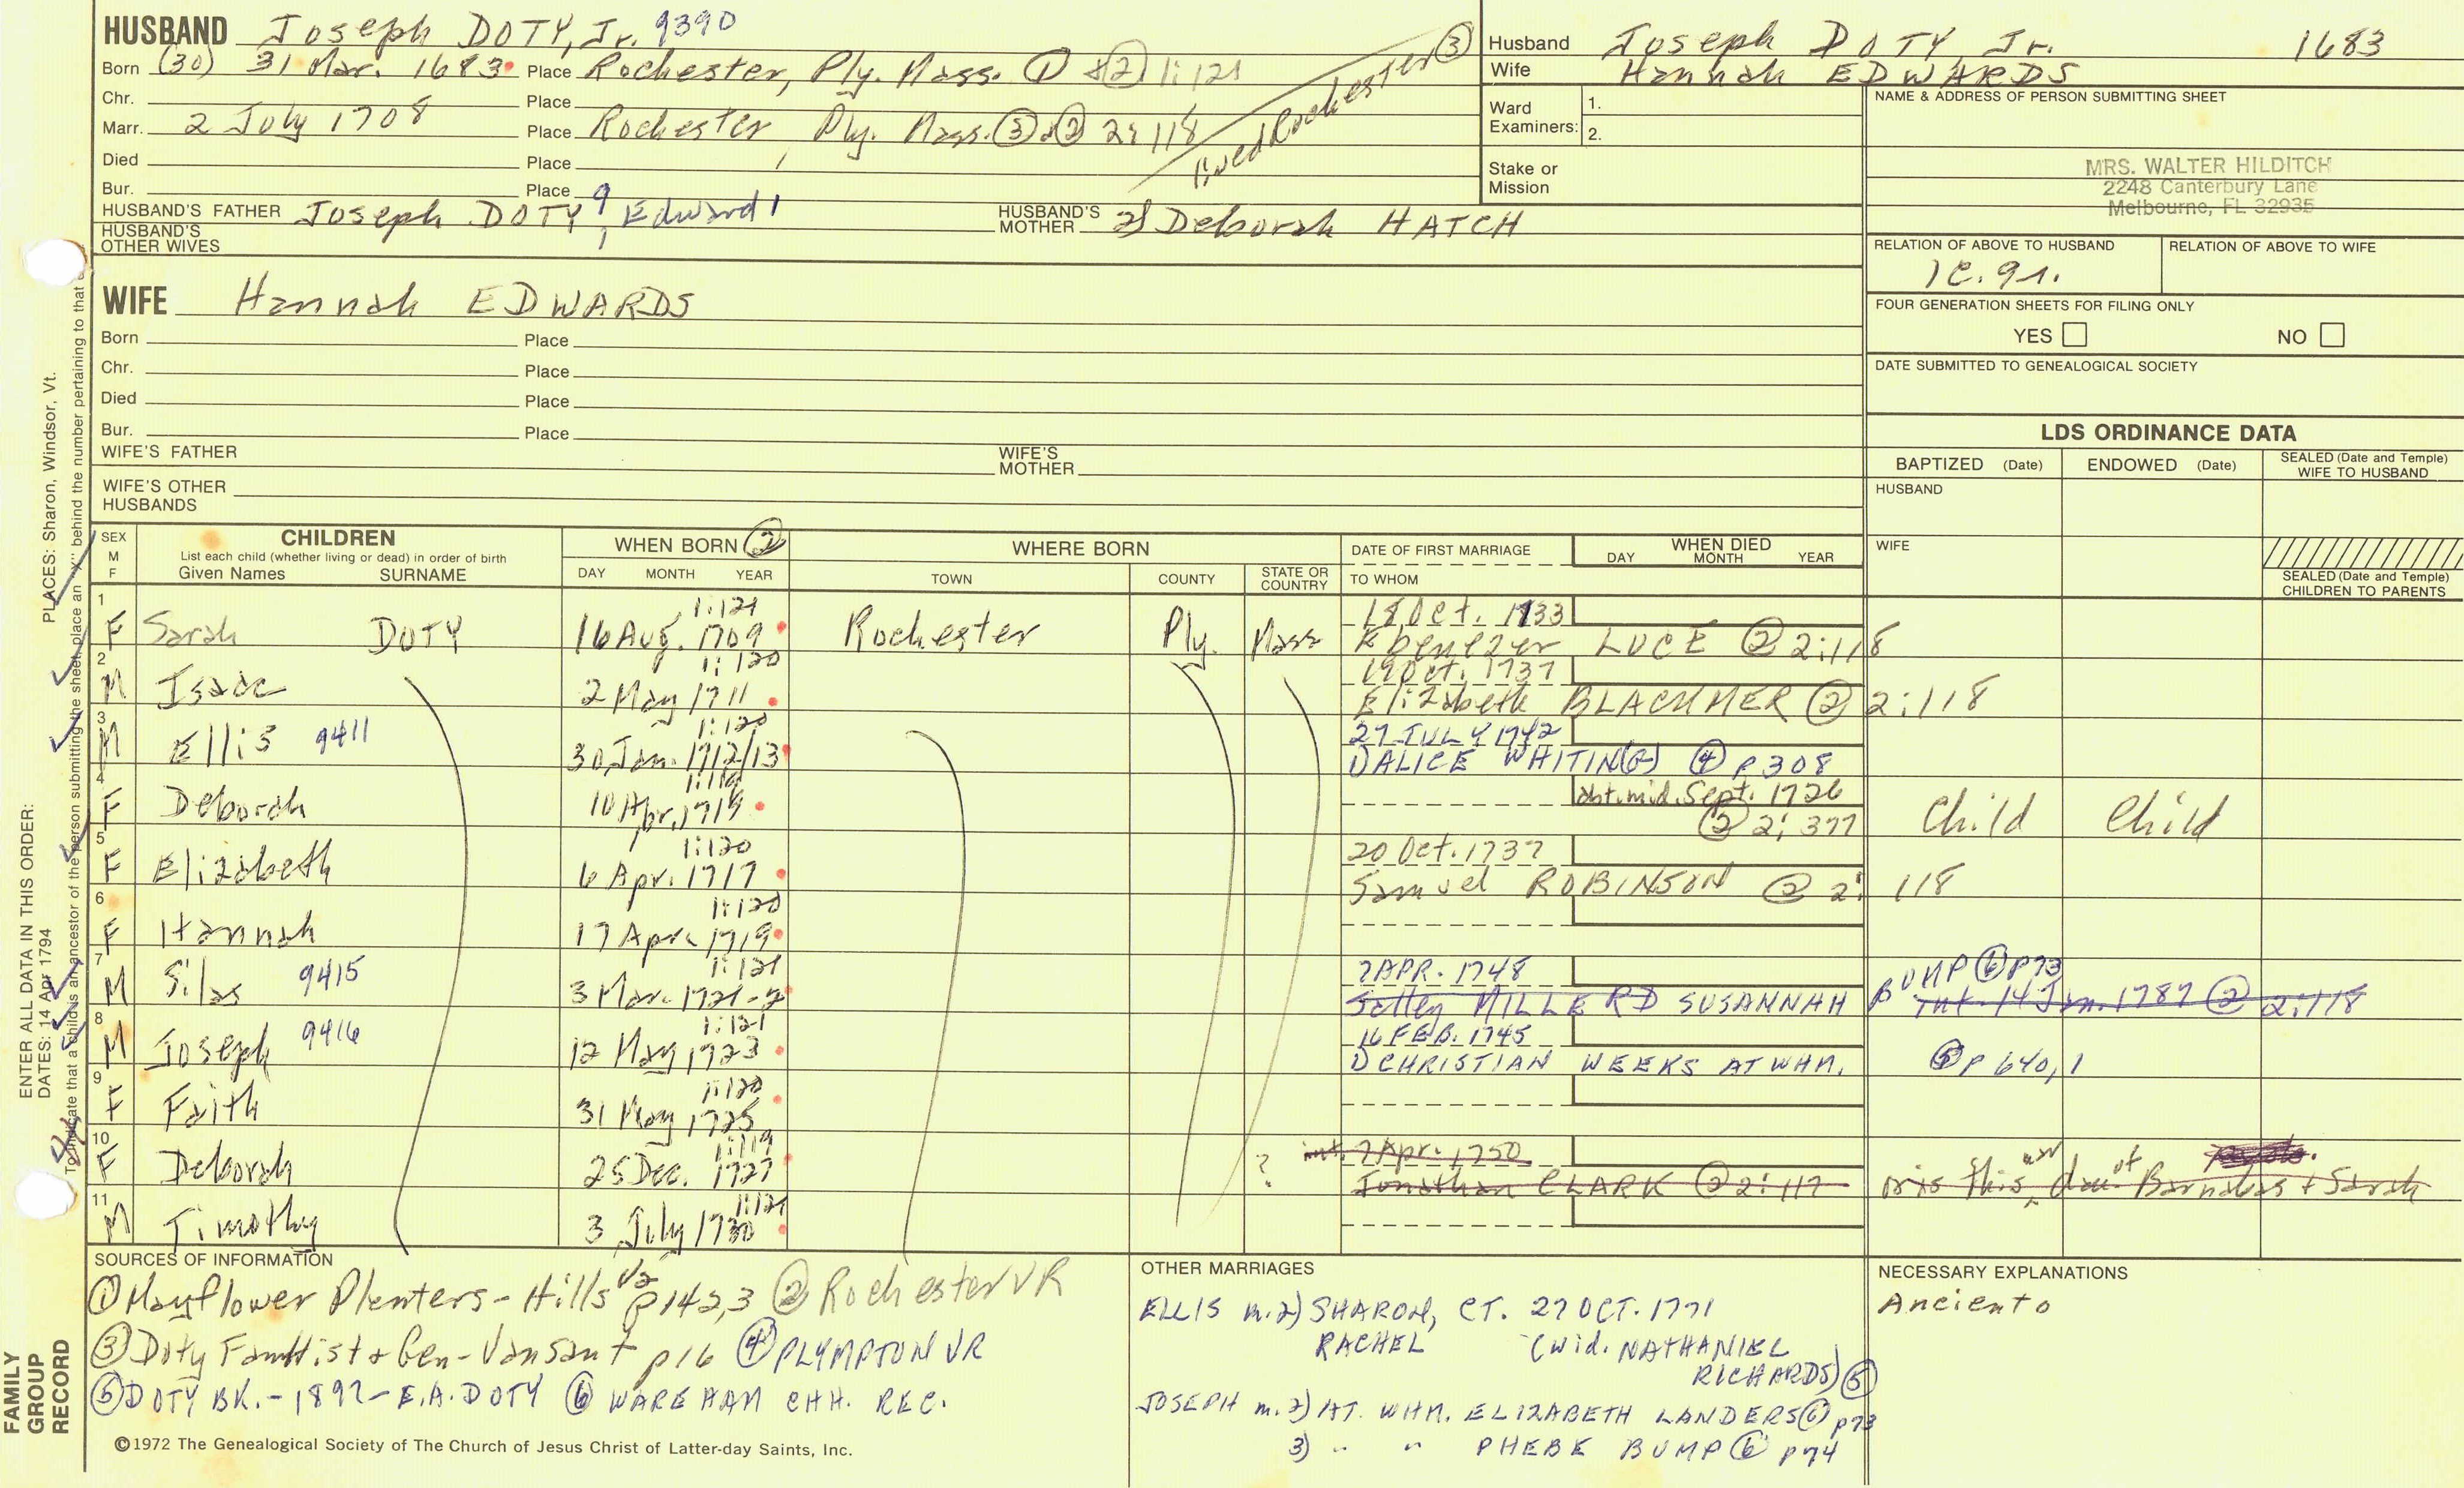 HUSBAND Joseph DOTY, Jr. 9390
Born (30) 31 Mar. 1683 Place Rochester, Ply. Mass. ① & ② 1:121
Chr. Place
Marr. 2 July 1708 Place Rochester, Ply. Mass. ③ & ② 2:118
lived Rochester ③
Died Place
Bur. Place
HUSBAND'S FATHER Joseph DOTY 9, Edward 1 HUSBAND'S MOTHER 2) Deborah HATCH
HUSBAND'S OTHER WIVES
Husband Joseph DOTY, Jr. 1683
Wife Hannah EDWARDS
Ward 1.
Examiners: 2.
Stake or Mission
NAME & ADDRESS OF PERSON SUBMITTING SHEET
MRS. WALTER HILDITCH
2248 Canterbury Lane
Melbourne, FL 32935
RELATION OF ABOVE TO HUSBAND RELATION OF ABOVE TO WIFE
FOUR GENERATION SHEETS FOR FILING ONLY
YES NO
DATE SUBMITTED TO GENEALOGICAL SOCIETY
WIFE Hannah EDWARDS
Born Place
Chr. Place
Died Place
Bur. Place
WIFE'S FATHER WIFE'S MOTHER
WIFE'S OTHER HUSBANDS
LDS ORDINANCE DATA
BAPTIZED (Date) ENDOWED (Date) SEALED (Date and Temple) WIFE TO HUSBAND
HUSBAND
WIFE
SEALED (Date and Temple) CHILDREN TO PARENTS
SEX M F
CHILDREN
List each child (whether living or dead) in order of birth
Given Names SURNAME
WHEN BORN ②
DAY MONTH YEAR
WHERE BORN
TOWN COUNTY STATE OR COUNTRY
DATE OF FIRST MARRIAGE
TO WHOM
WHEN DIED
DAY MONTH YEAR
1 F Sarah DOTY 1:121 16 Aug. 1709 Rochester Ply. Mass 18 Oct. 1733
Ebenezer LUCE ② 2:118
2 M Isaac 1:120 2 May 1711 19 Oct. 1737
Elizabeth BLACKMER ② 2:118
3 M Ellis 9411 1:120 30 Jan. 1712/13 27 JULY 1742
1) ALICE WHITIN(G) ④ p308
4 F Deborah 1:119 10 Apr. 1715 abt. mid. Sept. 1726
② 2:377 Child Child
5 F Elizabeth 1:120 6 Apr. 1717 20 Oct. 1737
Samuel ROBINSON ② 2:118
6 F Hannah 1:120 17 Apr. 1719
7 M Silas 9415 1:121 3 Mar. 1721-2 7 APR. 1748
MILLERD SUSANNAH BUMP ⑥ p73
Int. 14 Jan. 1787 ② 2:118
8 M Joseph 9416 1:121 12 May 1723 16 FEB. 1745
1) CHRISTIAN WEEKS AT WHM. ⑤ p 640,1
9 F Faith 1:120 31 May 1725
10 F Deborah 1:119 25 Dec. 1727 ? int. 7 Apr. 1750
Jonathan CLARK ② 2:117 or is this dau. of Barnabas + Sarah
11 M Timothy 1:121 3 July 1730
SOURCES OF INFORMATION
① Mayflower Planters - Hills V2 p142,3 ② Rochester VR
③ Doty Fam Hist & Gen - Vansant p16 ④ PLYMPTON VR
⑤ DOTY BK. - 1897 - E.A. DOTY ⑥ WAREHAM CHH. REC.
©1972 The Genealogical Society of The Church of Jesus Christ of Latter-day Saints, Inc.
OTHER MARRIAGES
ELLIS m. 2) SHARON, CT. 27 OCT. 1771
RACHEL (wid. NATHANIEL
RICHARDS) ⑤
JOSEPH m. 2) AT. WHM. ELIZABETH LANDERS ⑥ p73
3) " " PHEBE BUMP ⑥ p74
NECESSARY EXPLANATIONS
Anciento
ENTER ALL DATA IN THIS ORDER:
DATES: 14 Apr 1794
PLACES: Sharon, Windsor, Vt.
To indicate that a child is an ancestor of the person submitting the sheet, place an "X" behind the number pertaining to that
FAMILY GROUP RECORD